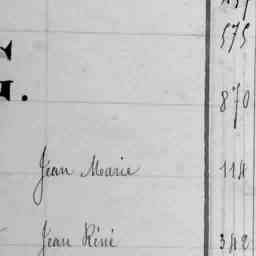 575
G.
870
Jean Marie 114
Jean Réné 342